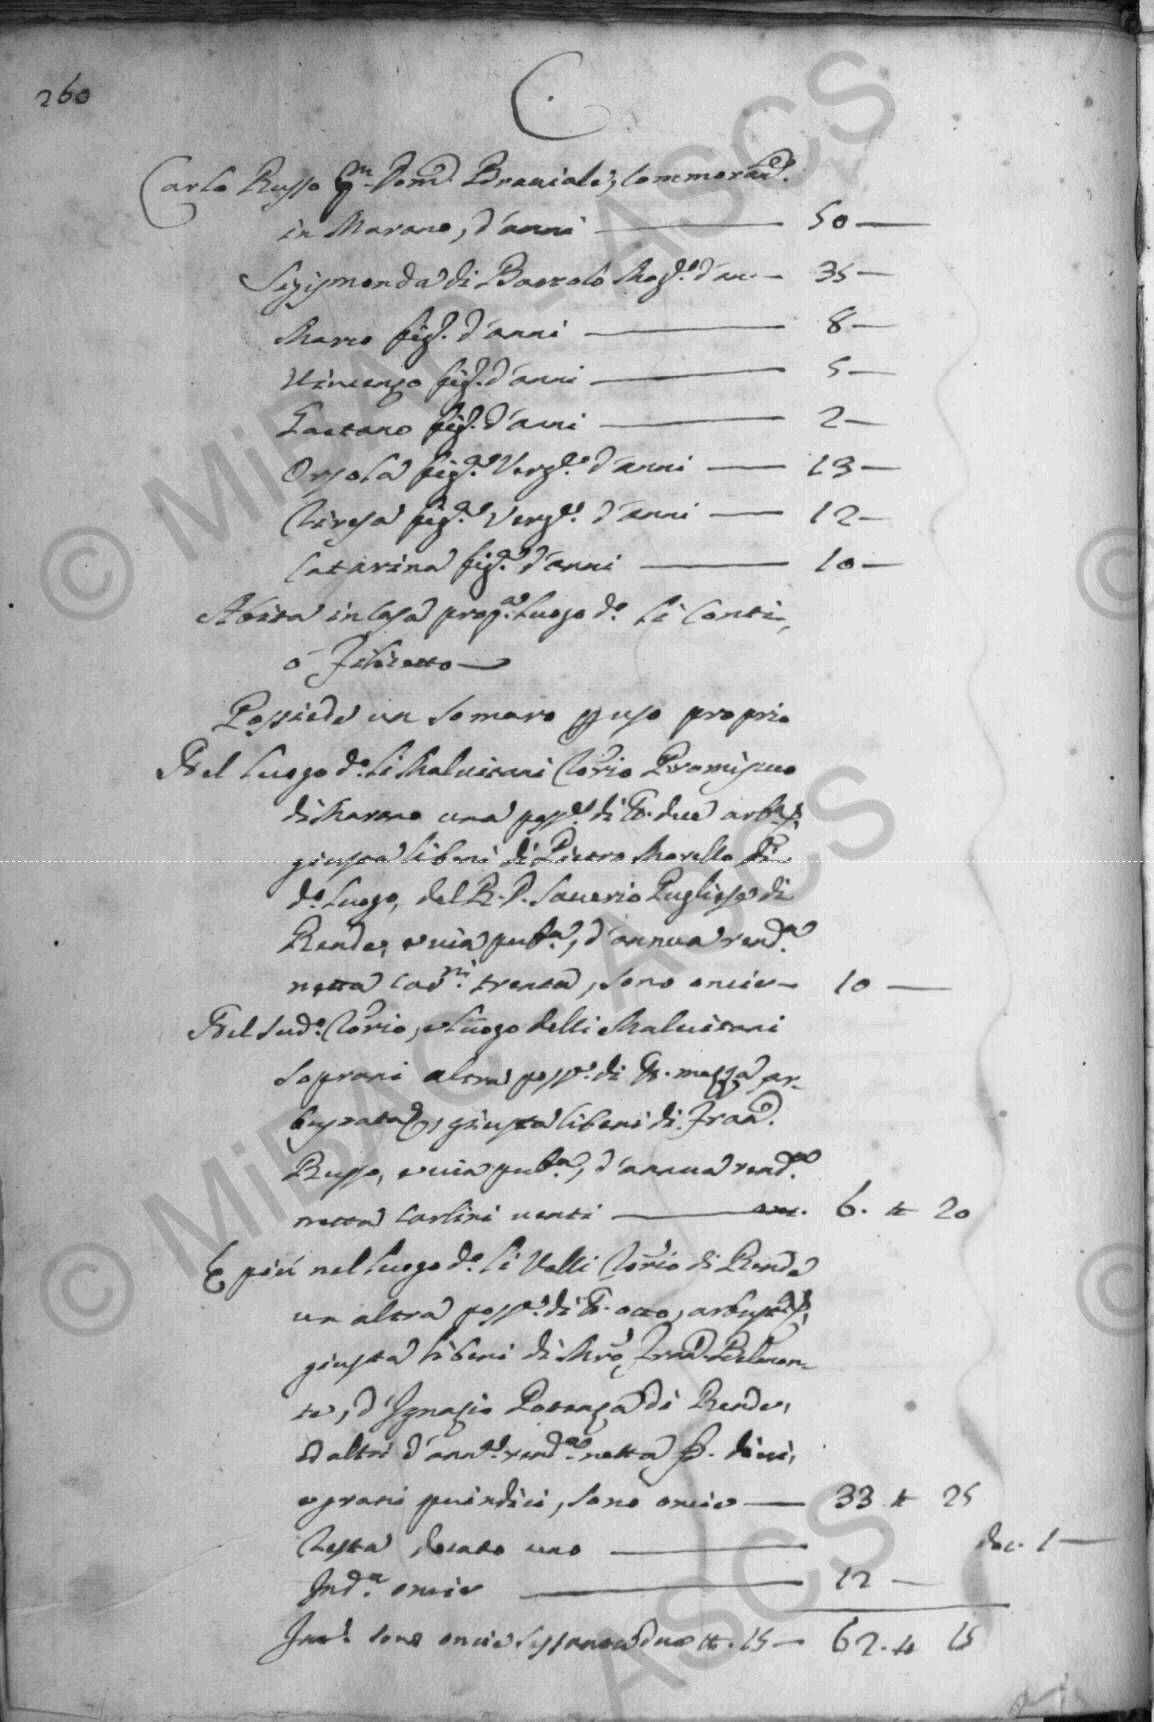 260
C
Carlo Russo qm Dom.co Braciale, commorante
in Marano, d'anni — 50 —
Sigismonda di Bartolo Mog.e d'an. — 35 —
Marco fig.o d'anni — 8 —
Vincenzo fig.o d'anni — 5 —
Gaetano fig.o d'anni — 2 —
Orsola fig.a Verg.e d'anni — 13 —
Teresa fig.a Verg.e d'anni — 12 —
Catarina fig.a d'anni — 10 —
Abita in Casa prop.a Luogo d.o li Conti,
ò
Possiede un Somaro p uso proprio
Nel Luogo d.o li Malvitani Torio Promiscuo
di Marano una poss.e di tt. due arb.ta,
giusta li beni di Pietro Morello di
d.o Luogo, del R. P. Saverio Pugliese di
Rende, e via pub.a, d'annua rend.a
netta Carni. trenta, sono oncie — 10 —
Nel sud.o Torio, e Luogo delli Malvitani
Soprani altra poss.e di tt. mezza ar-
bustata, giusta li beni di Fran.
Russo, e via pub.a, d'annua rend.a
netta Carlini venti — onc. 6. tt 20
E più nel Luogo d.o li Valli Torio di Rende
un altra poss.e di tt. otto, arbust.a,
giusta li beni di Mro Fran. Belmon-
te, d'Ignazio Potenza di Rende,
ed altri d'ann.a rend.a netta D. dieci,
e grani quindici, sono oncie — 33 tt 25
Testa ducato uno — doc. 1 —
Ind.a oncie — 12 —
Sono oncie sessantadue tt. 15 — 62. tt 15
© MiBAC - ASCS
© MiBAC - ASCS
ASCS
©
©